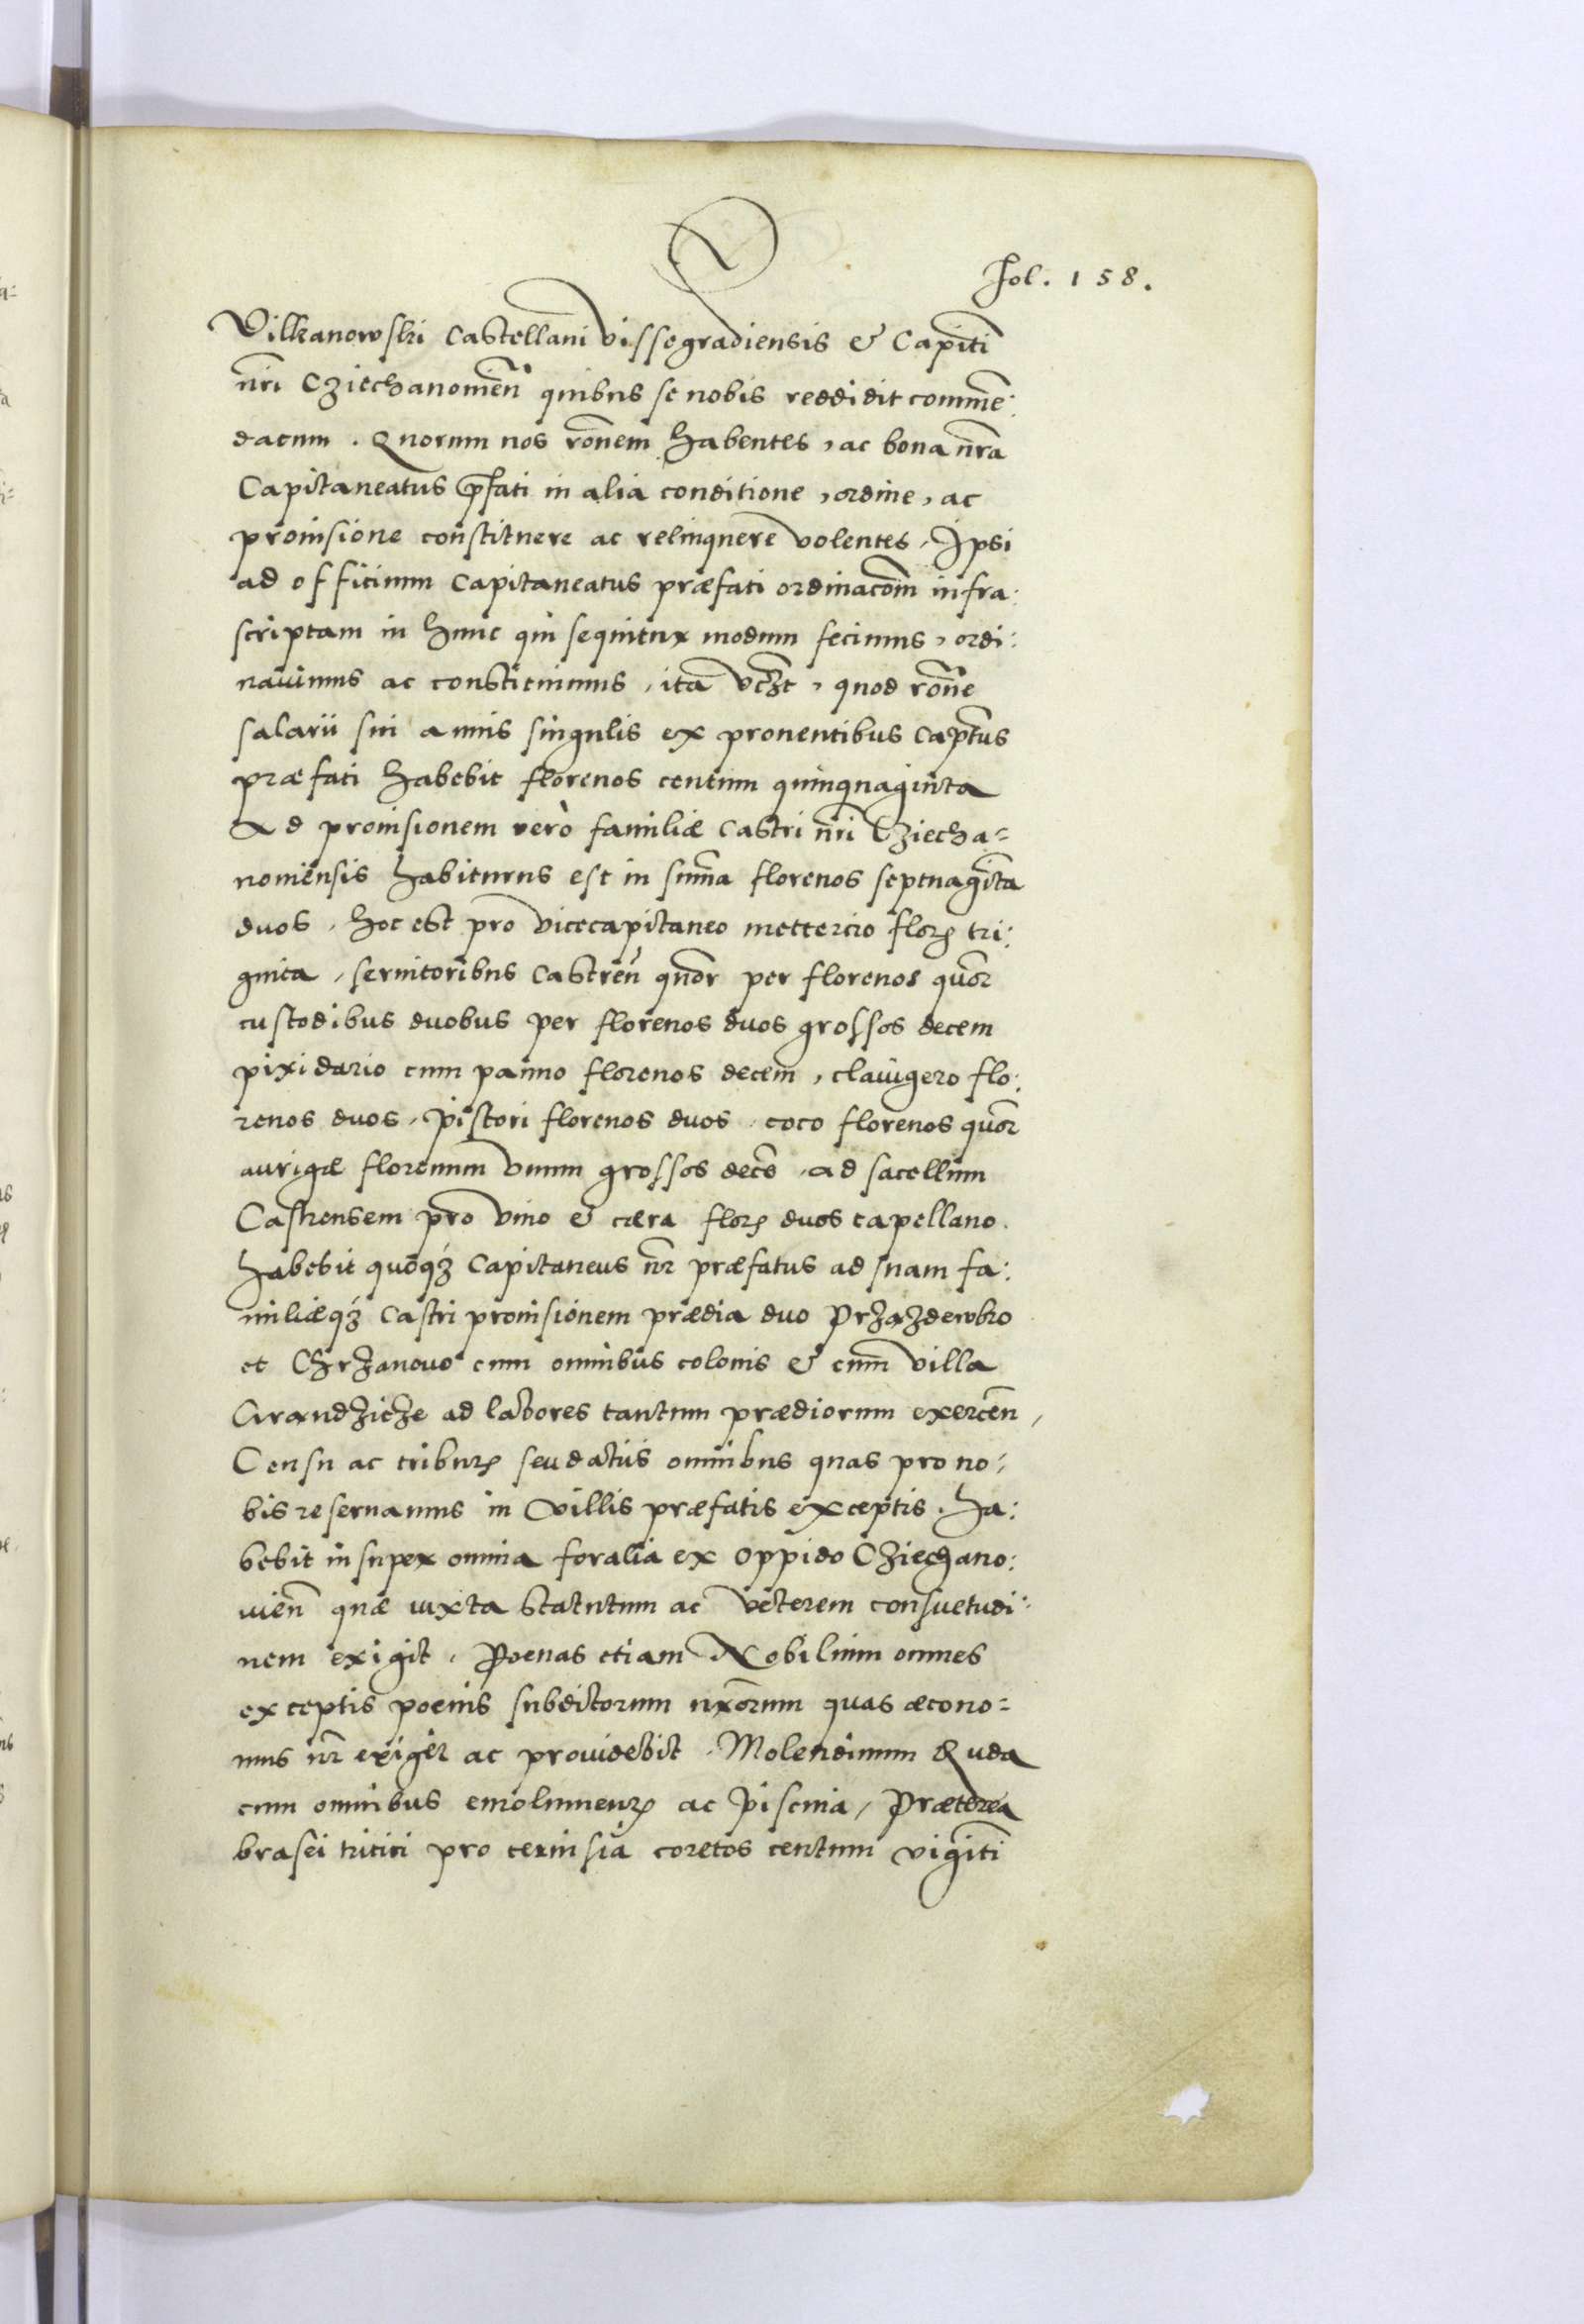 Fol. 158.
Vilkanowski Castellani vissegradiensis & Capiti
nr̄i Cziechanouieñ quibus se nobis reddidit comme:
datum. Quorum nos ronem habentes, ac bona nr̄a
Capitaneatus p̄fati in alia conditione, ordine, ac
prouisione constituere ac relinquere volentes, Ipsi
ad officium Capitaneatus præfati ordinacōm infra:
scriptam in hunc qui sequitur modum fecimus, ordi:
nauimus ac constituimus, ita vczt, quod rōne
salarii sui annis singulis ex prouentibus Captus
præfati habebit florenos centum quinquaginta
Ad prouisionem verò familiæ Castri nr̄i Cziecha=
nouiensis habiturus est in sum̄a florenos septuagīta
duos, hoc est pro vicecapitaneo mettercio floꝝ tri:
ginta, seruitoribus Castreñ quor per florenos quor
custodibus duobus per florenos duos grossos decem
pixidario cum panno florenos decem, clauigero flo:
renos duos, pistori florenos duos, coco florenos quor
aurigæ florenum vnum grossos decē, ad sacellum
Castrensem pro vino & cæra floꝝ duos capellano.
habebit quoqꝫ Capitaneus nr̄ præfatus ad suam fa:
miliæqꝫ Castri prouisionem prædia duo Przazdewbro
et Chrzanouo cum omnibus colonis & cum villa
Grandzicze ad labores tantum prædiorum exerceñ,
Censu ac tributꝝ seu datiis omnibus quas pro no:
bis reseruamus in villis præfatis exceptis. ha:
bebit insuper omnia foralia ex oppido Cziechano:
uieñ quæ iuxta statutum ac veterem consuetudi:
nem exigit. Poenas etiam Nobilium omnes
exceptis poenis subditorum nrōrum quas œcono=
mus nr̄ exiget ac prouidebit. Molendinum Ruda
cum omnibus emolumentꝝ ac piscina, Præterea
brasei tritici pro ceruisia coretos centum vigīti